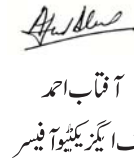 آفتاب احمد
ایگزیکٹیو آفیسر